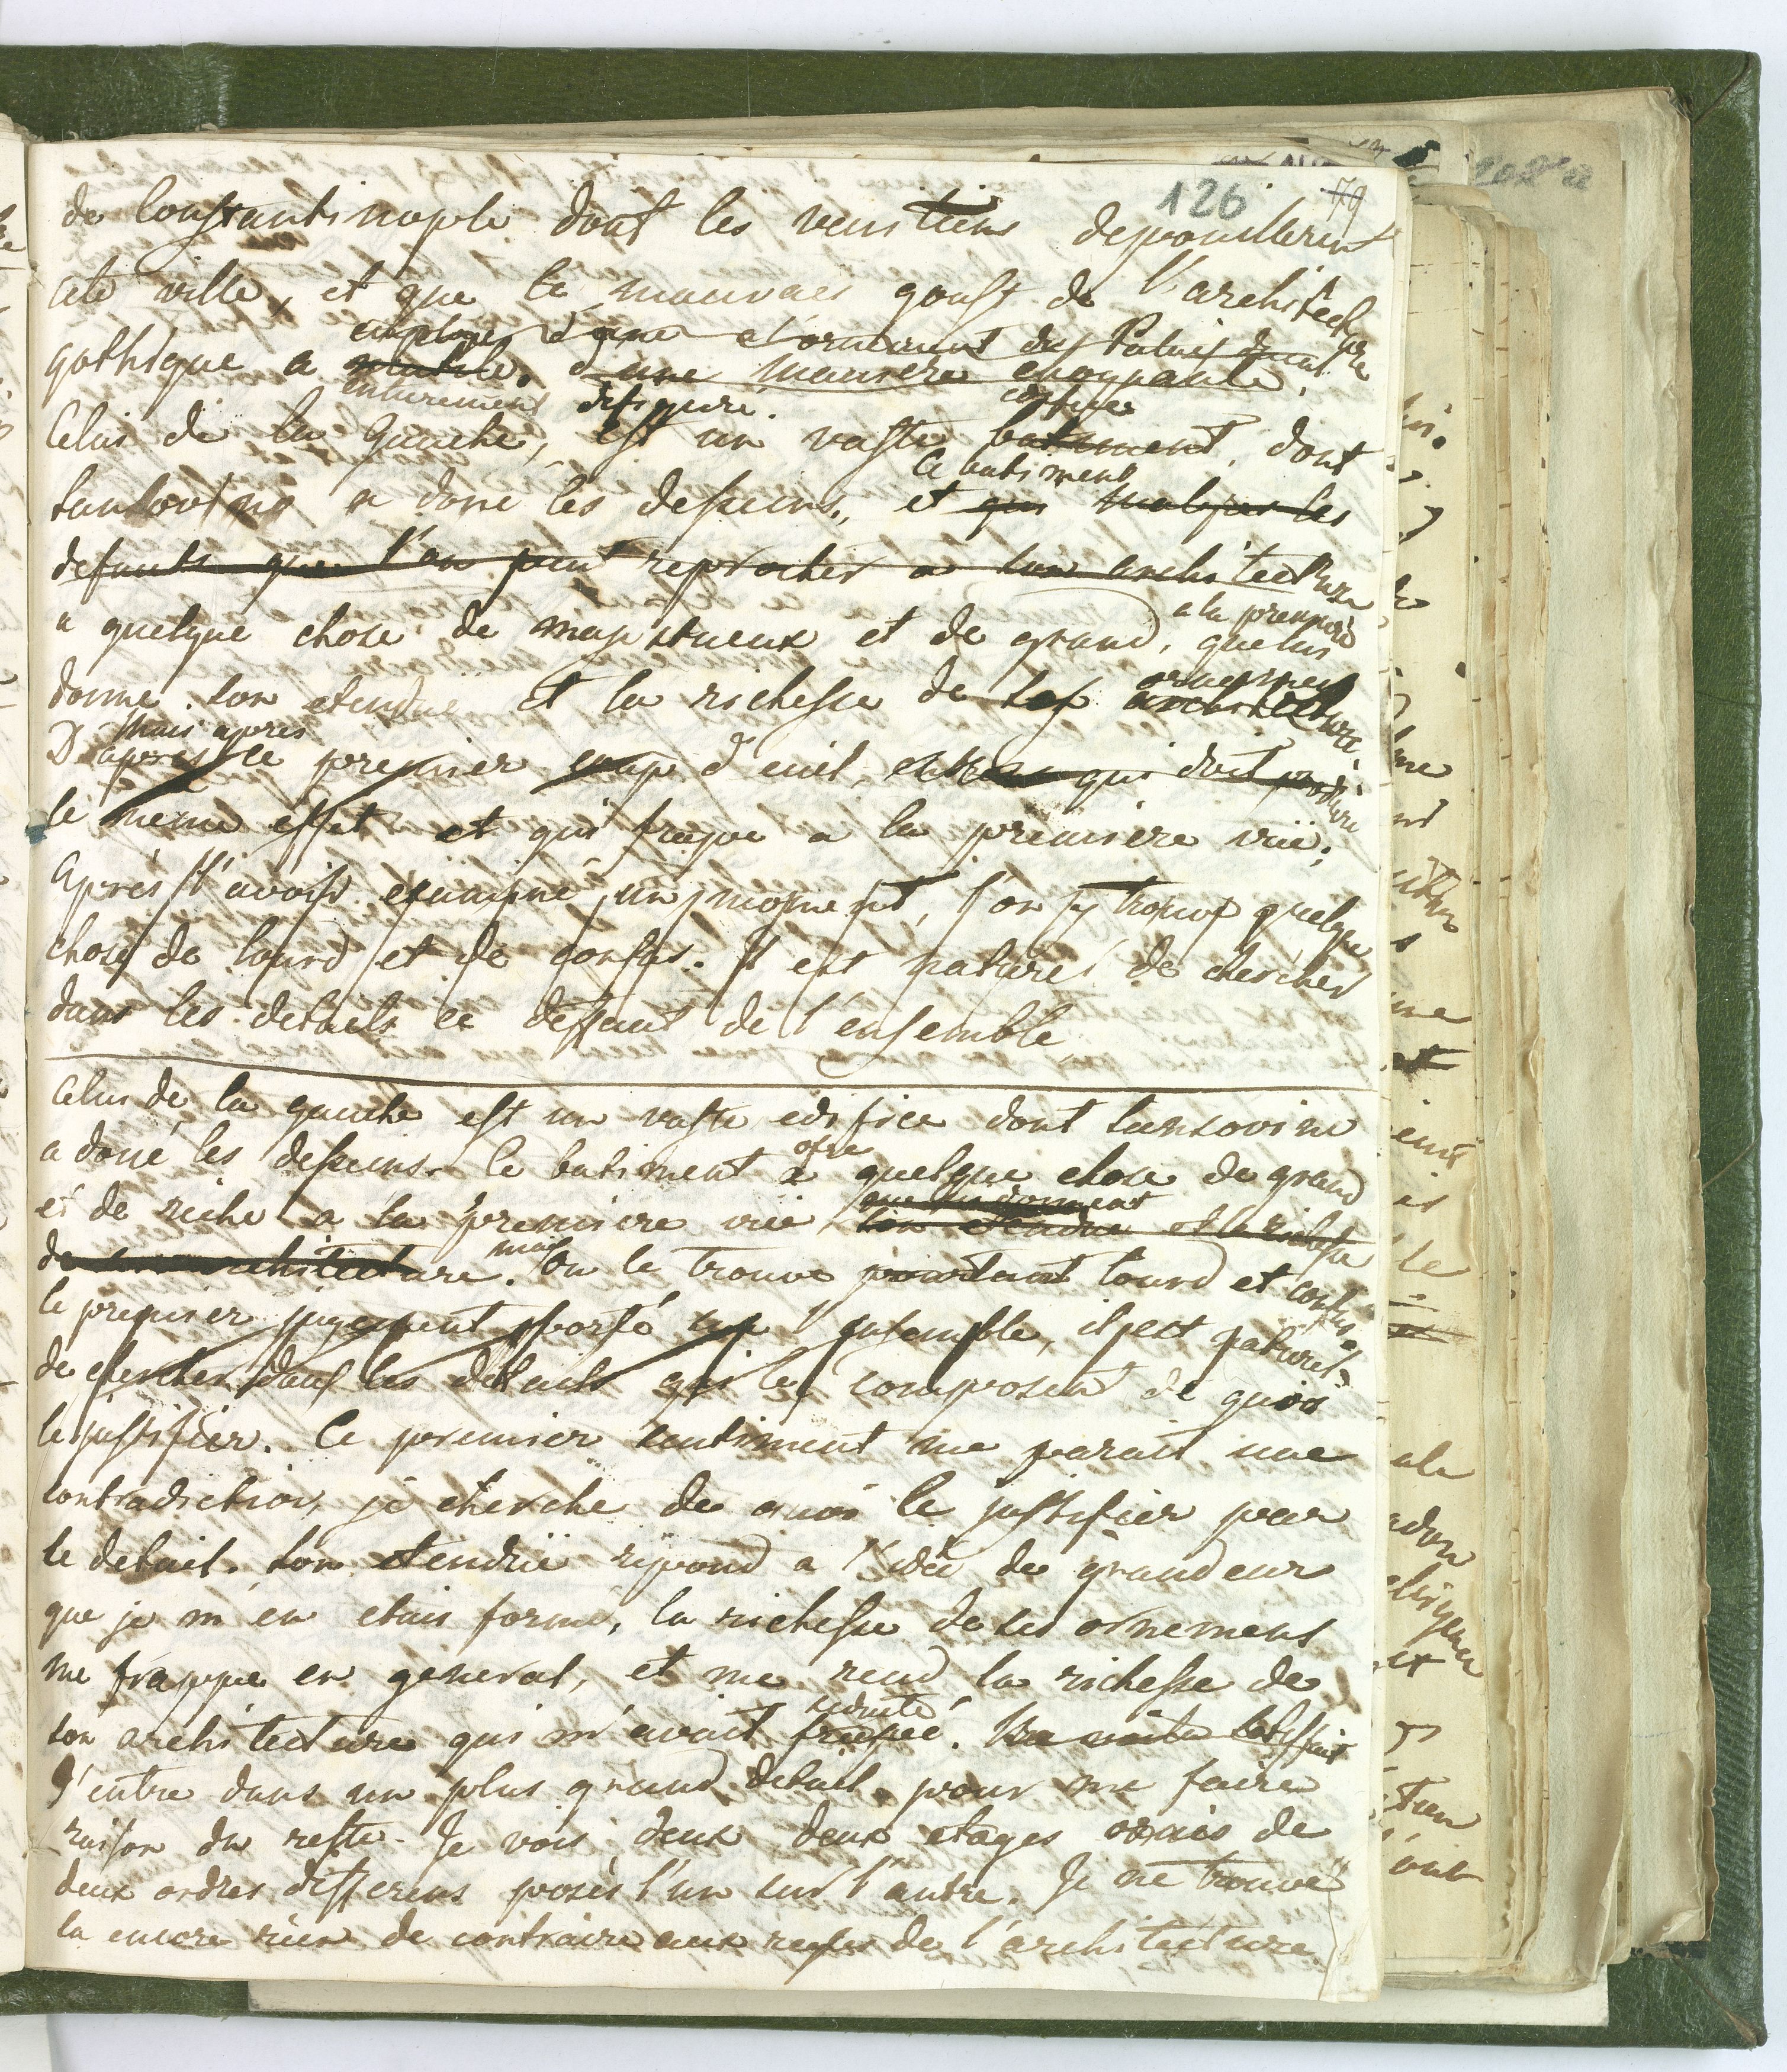 126 79
de Constantinople dont les venitiens depouillerent
cete ville, et que le mauvais goust de l'architecture
employer d'une l'ornement du Palais ducal
gothique a mutilé d'une maniere choquante.
entierement defiguré.
Celui de la Gauche, est un vaste batiment, dont
edifice
Sansovino a doné les desseins, et qui malgré les
Ce batiment
defauts que l'on peut reprocher a son architecture
a quelque chose de majestueux et de grand, que lui
a la premiere
donne son etendue et la richesse de ses architecture
ornemens
Mais apres
D'apres ce premier coup d'œil, qui doit produire
le meme effet et qui frappe a la premiere vüe,
Après l'avoir examiné un moment, l'on y trouve quelque
chose de lourd et de confus. Il est naturel de chercher
dans les details ce deffaut de l'ensemble
Celui de la gauche est un vaste edifice dont Sansovino
a doné les desseins. Ce batiment a quelque chose de grand
ofre
et de riche a la premiere vüe son etendue et la richesse
que lui donnent
de son architecture. On le trouve pourtant lourd et confus.
mais
le premier jugement porté sur l'ensemble, il est naturel
de chercher dans les details qui le composent de quoi
le justifier. Ce premier sentiment me parait une
contradiction, je cherche de quoi le justifier par
le detail. Son etendüe repond a l'idée de grandeur
que je m'en etais formé, la richesse de ses ornemens
me frappe en general, et me rend la richesse de
son architecture qui m'avait frapé.
seduite
J'entre dans un plus grand detail pour me faire
raison du reste. Je vois deux deux etages ornés de
deux ordres differens posés l'un sur l'autre. Je ne trouve
la encore rien de contraire aux regles de l'architecture